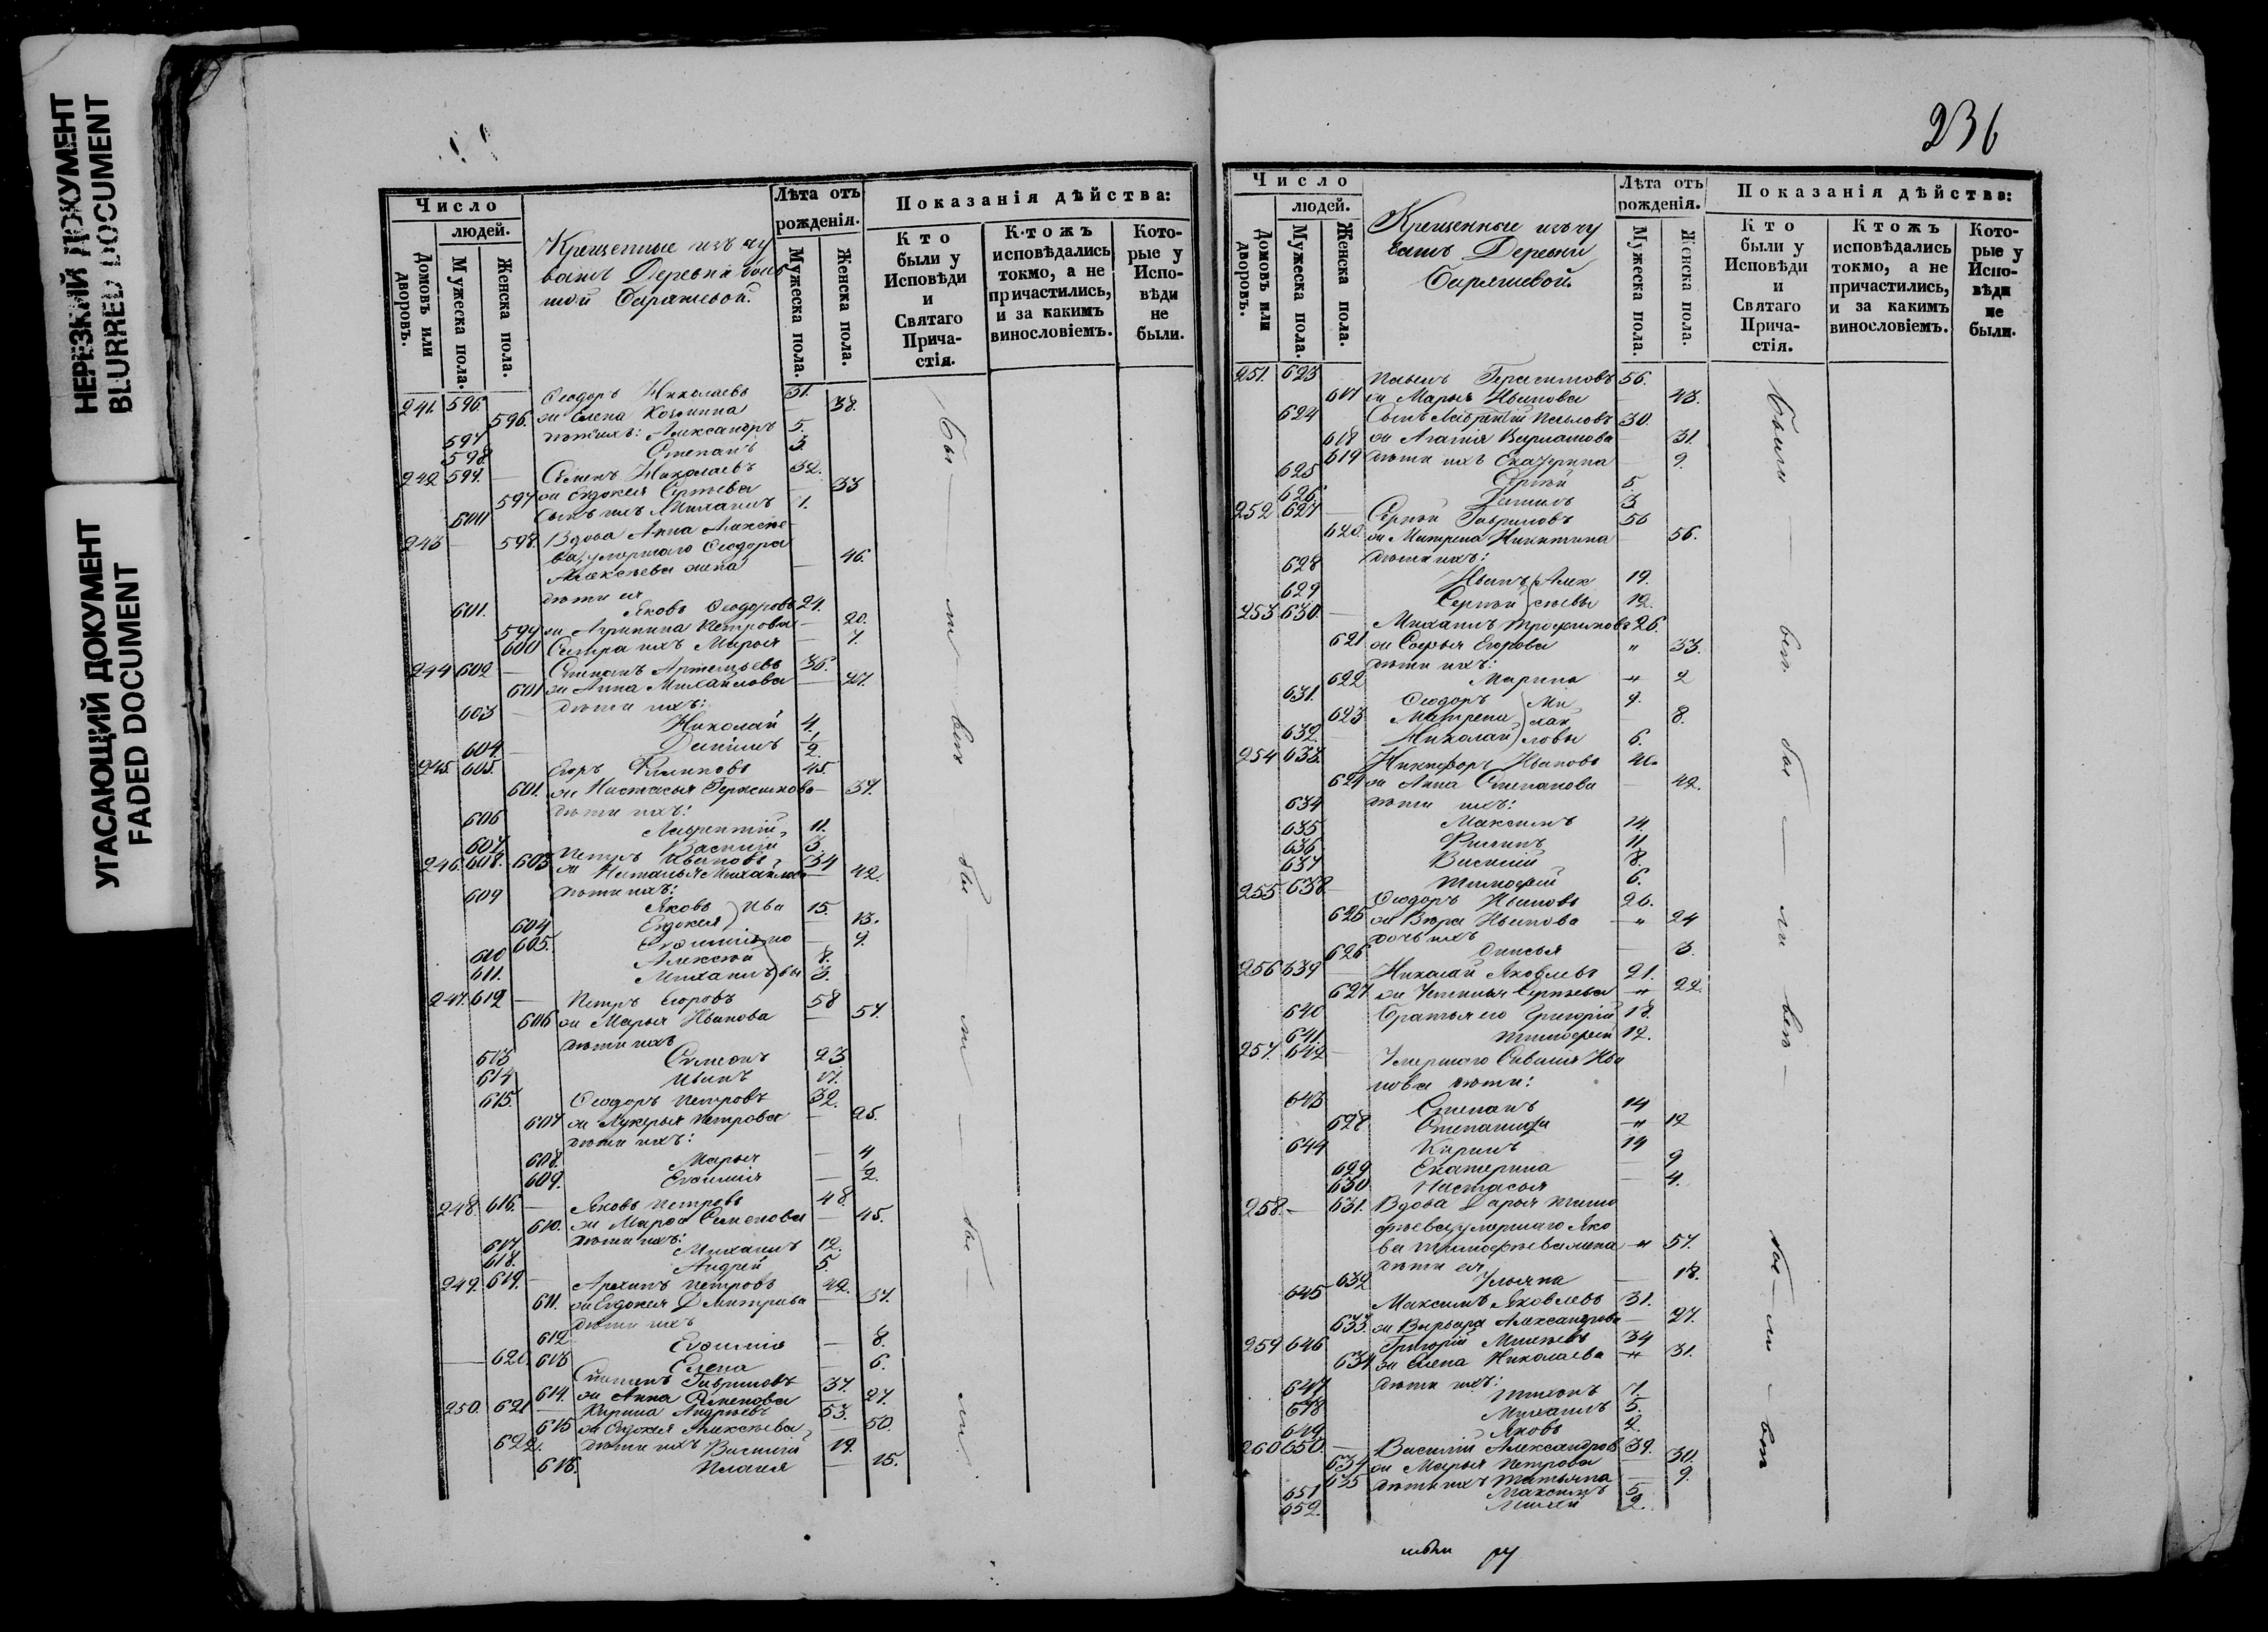 НЕРЕЗКИЙ ДОКУМЕНТ
BLURRED DOCUMENT
УГАСАЮЩИЙ ДОКУМЕНТ
FADED DOCUMENT
Число
людей.
Домовъ или дворовъ.
Мужеска пола.
Женска пола.
Крещенные изъ чу
вашъ Деревни боль
шой
Лѣта отъ рожденія.
Мужеска пола.
Женска пола.
Показанія дѣйства:
Кто были у Исповѣди и Святаго Причастія.
Ктожъ исповѣдались токмо, а не причастились, и за какимъ винословіемъ.
Которые у Исповѣди не были.
241. 596 Ѳеодоръ Николаевъ 31.
596. ж Елена Козмина 38.
597 дѣти ихъ: Александръ 5.
598. Степанъ 3.
242 599. Семенъ Николаевъ 32.
597 ж Евдокия Сергѣева 33
600 Сынъ ихъ Михаилъ 1.
243 598. Вдова Анна Алексѣе
ва, умершаго Ѳеодора
Алексѣева жена 46.
дѣти ея
601. Яковъ Ѳеодоровъ 24.
599 ж Агрипина Петрова 20.
600 Сестра ихъ Марья 7.
244 602 Степанъ Артемьевъ 36.
601 ж Анна Михайлова 27.
603 дѣти ихъ:
Николай 4.
604. Данилъ 1/2
245. 605. Егоръ Филиповъ 45.
601. ж Настасья Герасимова 37.
606 дѣти ихъ:
Лаврентій 11.
607. Василій 3.
246. 608. 603 Петръ Ивановъ 34
ж Наталья Михайлова 42.
609 дѣти ихъ:
Яковъ Ива 15.
604 Евдокия 13.
605. Евфимія но 9.
610 Алексѣй 8.
611. Михаилъ вы 3.
247. 612 Петръ Егоровъ 58
606 ж Марья Иванова 57.
дѣти ихъ
613 Симеонъ 23
614 Иванъ 17.
615. Ѳеодоръ Петровъ 32.
607 ж Лукерья Петрова 25.
дѣти ихъ:
608. Марья 4
609. Евфимія 1/2.
248. 616. Яковъ Петровъ 48.
610. ж Марѳа Семенова 45.
617 дѣти ихъ: Михаилъ 12.
618. Андрей 5.
249. 619. Архипъ Петровъ 42.
611. ж Евдокия Дмитрева 37.
дѣти ихъ
612 Евфимія 8.
620. 613 Елена 6.
Степанъ Гавриловъ 37.
614. ж Анна Семенова 27.
250. 621 Кирила Андреевъ 53.
615 ж Евдокия Алексѣева 50.
622. дѣти ихъ Василій 19.
616. Пелагея 15.
бы — ли — всп — бы — ли — бы — ли
236
Число
людей.
Домовъ или дворовъ.
Мужеска пола.
Женска пола.
Крещенные изъ чу
вашъ Деревни
Лѣта отъ рожденія.
Мужеска пола.
Женска пола.
Показанія дѣйства:
Кто были у Исповѣди и Святаго Причастія.
Ктожъ исповѣдались токмо, а не причастились, и за какимъ винословіемъ.
Которые у Исповѣди не были.
251. 623 Павелъ Герасимовъ 56.
617 ж Марья Иванова 43.
624 Сынъ Лаврентій Павловъ 30.
618 ж Агапія Варламова 31.
619 дѣти ихъ Екатерина 9.
625 Сергѣй 5.
626. Данилъ 3
252 627 Сергѣй Гавриловъ 56
620. ж Матрена Никитина 56.
628 дѣти ихъ:
Иванъ Алек 19.
629 Сергѣй сѣевы 12.
253 630. Михаилъ Трофимовъ 26.
621 ж Софья Егорова 33.
дѣти ихъ:
622 Марина 2
631. Ѳеодоръ Ми 9.
623 Матрена хаи 8.
632. Николай ловы 6.
254 633. Никифоръ Ивановъ
624 ж Анна Степанова 42.
634 дѣти ихъ:
Максимъ 14.
635 Филипъ 11.
636 Василій 8.
637 Тимофей 6.
255 638 Ѳеодоръ Ивановъ 26.
625 ж Вѣра Иванова 24
дочь ихъ
626 Анисья 3.
256 639 Николай Яковлевъ 21.
627. ж Устинья Сергѣева 22.
640 Братья его Григорій 18.
641. Тимофей 12.
257. 642 Умершаго Савелія Ива
нова дѣти:
643 Степанъ 14
628 Степанида 12
644 Кирилъ 14
629 Екатерина 9
630 Настасья 4.
258. 631. Вдова Дарья Тимо
фѣева, умершаго Яко
ва Тимофѣева жена 57.
дѣти ея
632 Ульяна 18.
645 Максимъ Яковлевъ 31.
633 ж Варвара Александрова 27.
259 646 Григорій Матвѣевъ 34
634 ж Елена Николаева 31.
647 дѣти ихъ: Тихонъ 7.
648 Михаилъ 5.
649 Яковъ 2.
260 650. Василій Александров 39.
634 ж Марья Петрова 30.
635 дѣти ихъ Татьяна 9.
651 Максимъ 5
652. 2.
были — всп — бы — ли — всп — бы — ли — всп